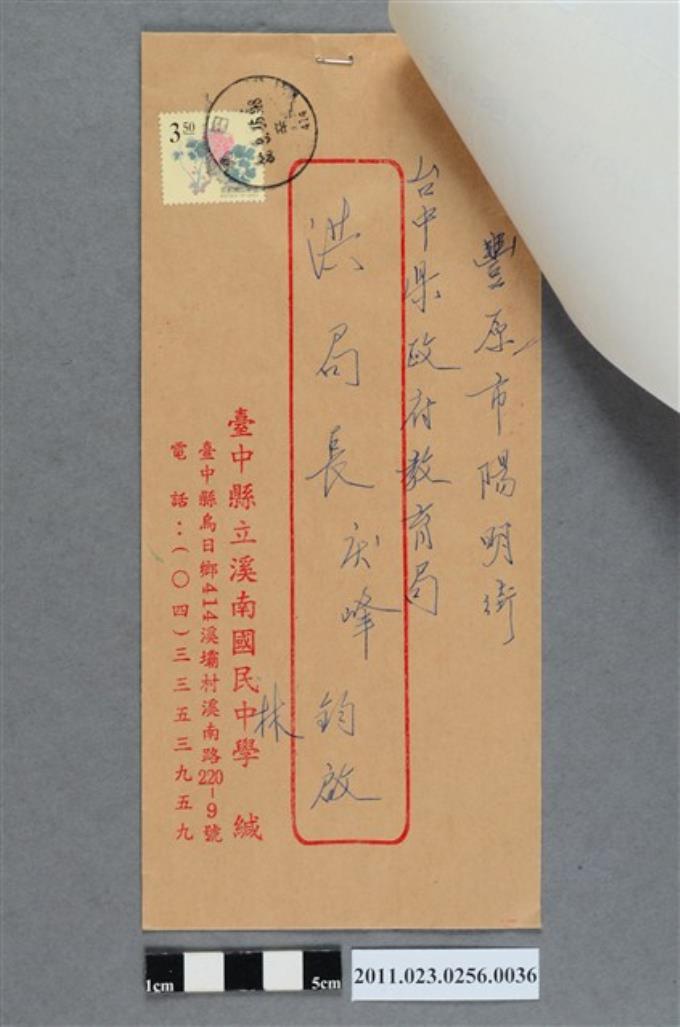 豐原市陽明街
台中県政府教育局
洪局長庆峰 鈞啟
臺中縣立溪南國民中學 緘
林
臺中縣烏日鄉414溪壩村溪南路220-9號
電話：(○四)三三五三九五九
3 50
414
1cm
5cm
2011.023.0256.0036